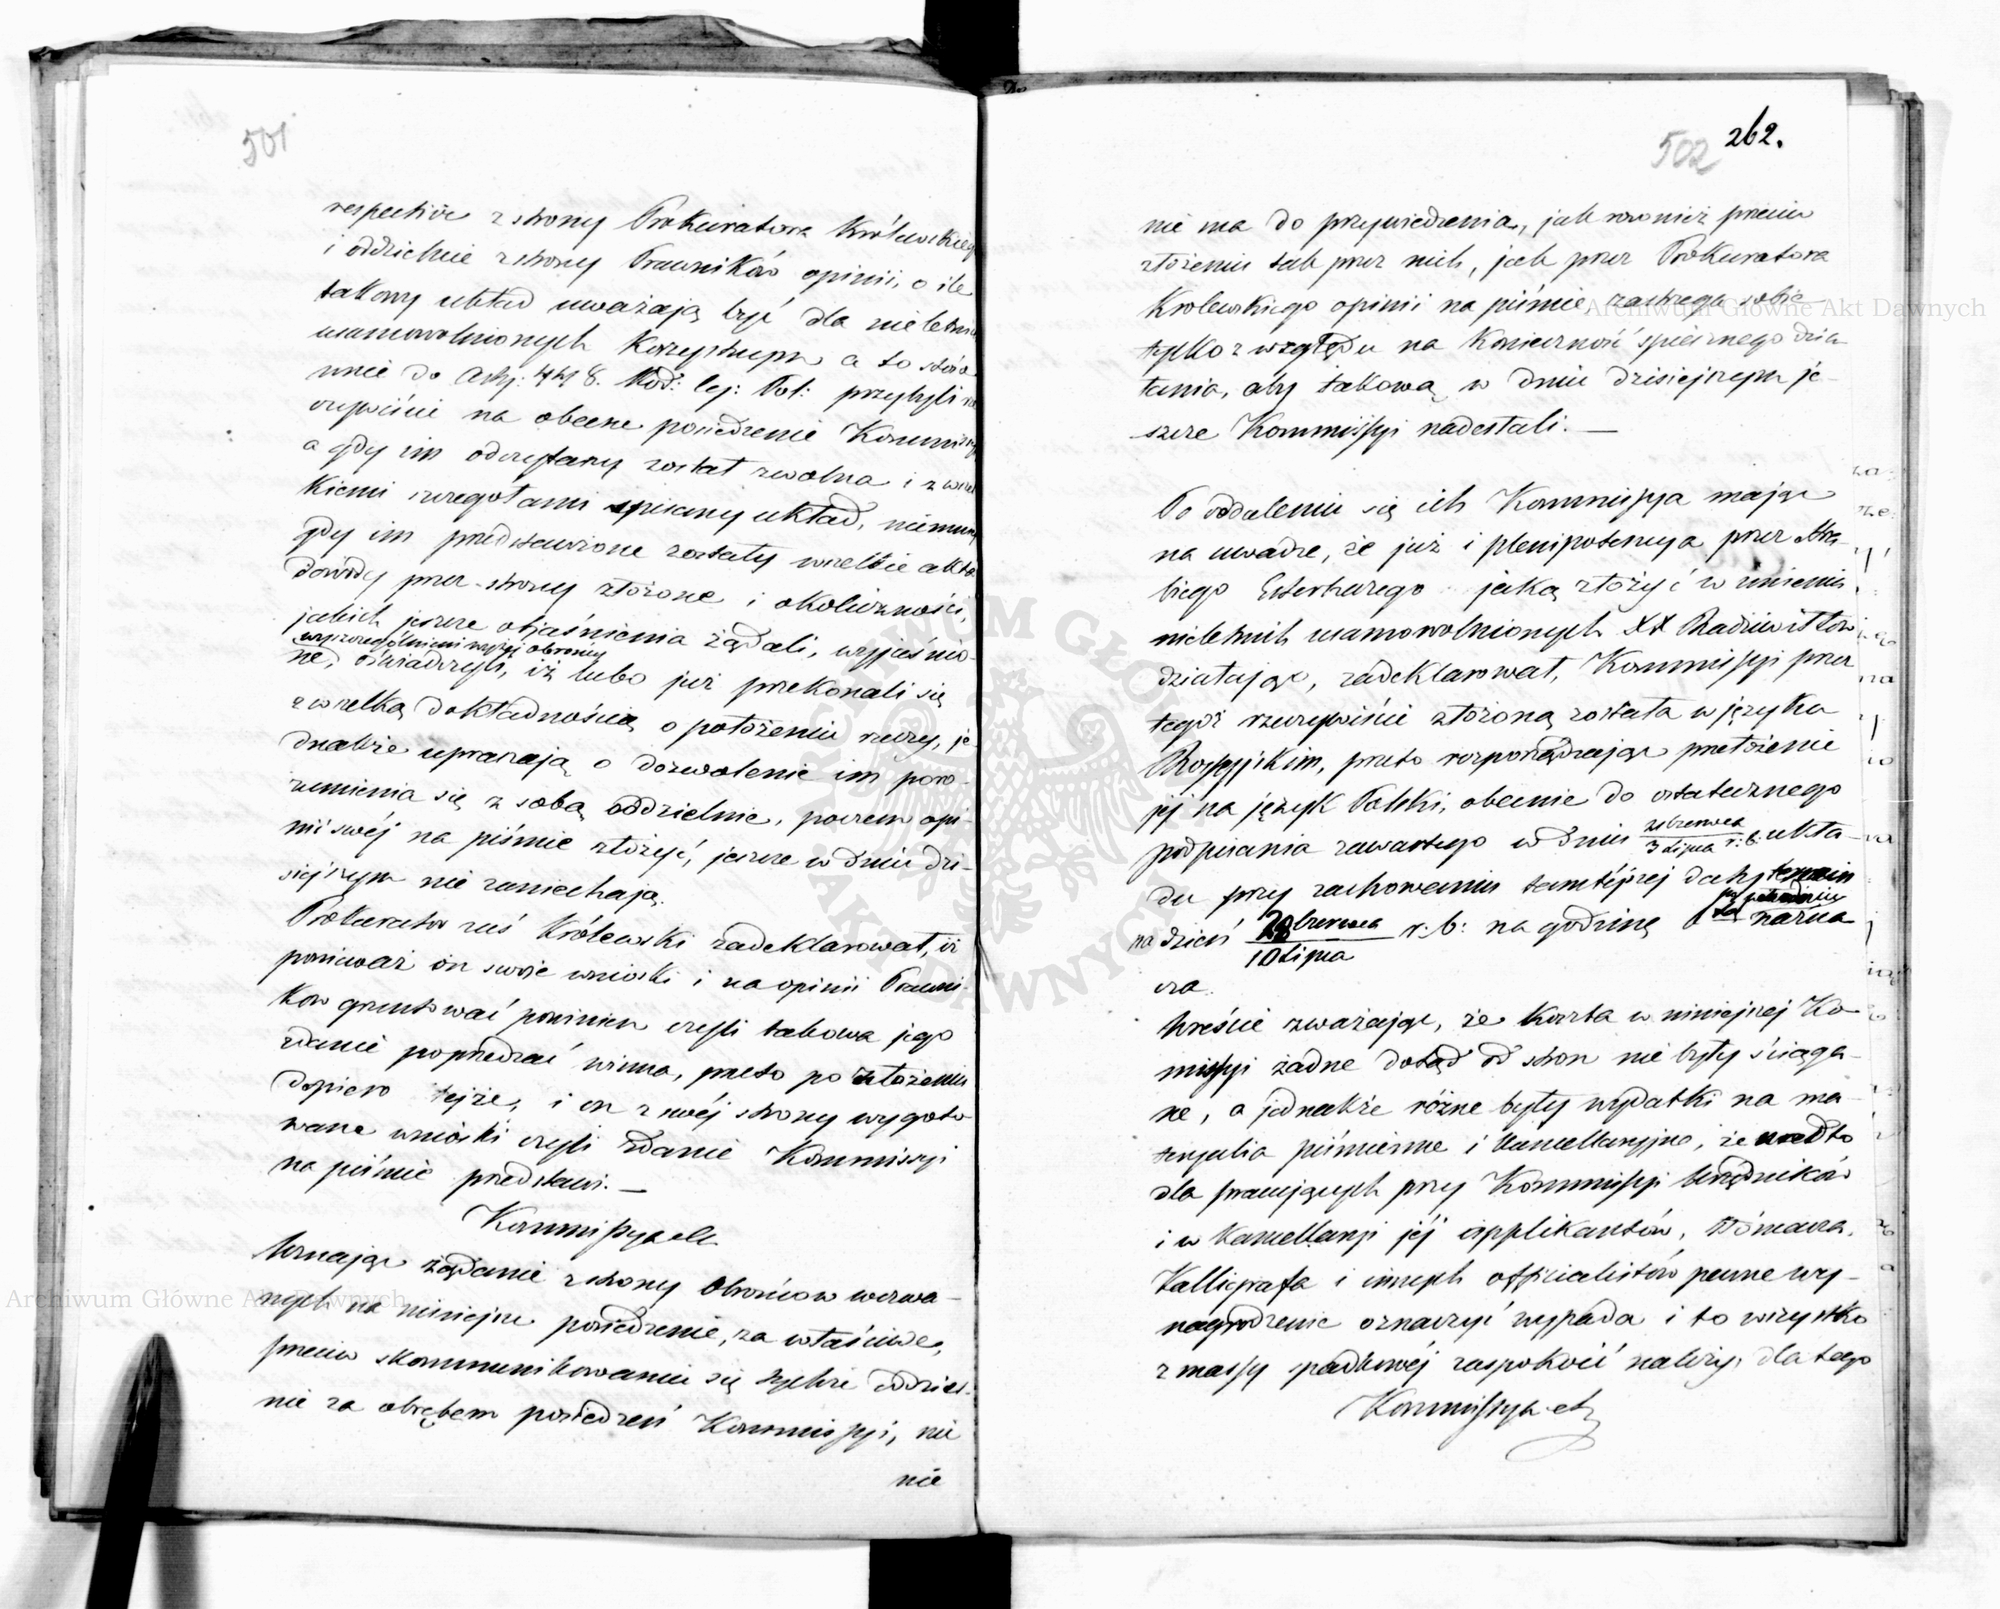 501
respective z strony Prokuratora Królewskiego
i oddzielnie z strony Prawników opinii, o ile
takowy układ uważają być dla nieletnich
usamowolnionych korzystnym a to stóso
wnie do Arty: 448. Kod: Cy: Pol: przybyli
oczywiście na obecne posiedzenie Kommissyi
a gdy im odczytany został zwolna i z wszel
kiemi szczegołami spisany układ, niemniej
gdy im przedstawione zostały wszelkie akta
dowody przez strony złożone i okoliczności,
jakich jeszcze objaśnienia żądali, wyjaśnio-
wyszczególnieni wyżej obrońcy
ne, oświadczyli, iż lubo już przekonali się
z wszelką dokładnością o położeniu rzeczy, je-
dnakże upraszają o dozwolenie im poro-
zumienia się z sobą oddzielnie, poczem opi-
nii swéj na piśmie złożyć, jeszcze w dniu dzi-
siejszym nie zaniechają.
Prokurator zaś Królewski zadeklarował, iż
ponieważ on swoje wnioski i na opinii Prawni-
ków gruntować powinien czyli takowa jego
zdanie poprzedzać winna, przeto po złożeniu
dopiero tejże, i on z swéj strony wygoto
wane wnioski czyli zdanie Kommissyi
na piśmie przedstawi. —
Kommissya
Uznając żądanie z strony Obrońców wezwa-
nych na niniejsze posiedzenie, za właściwe,
przeciw skommunikowaniu się tychże oddziel-
nie za obrębem posiedzeń Kommissyi, nic
nie
502 262.
nie ma do przywiedzenia, jak rownież przeciw
złożeniu tak przez nich, jak przez Prokuratora
Krolewskiego opinii na piśmie zastrzega sobie
tylko z względu na konieczność spiesznego dzia
łania, aby takową w dniu dzisiejszym je-
szcze Kommissyi nadesłali. —
Po oddaleniu się ich Kommissya mając
na uwadze, że już i plenipotencya przez Hra-
biego Esterhazego jaką złożyć w imieniu
nieletnich usamowolnionych XX Radziwiłłów
działając, zadeklarował, Kommissyi przez
tegoż rzeczywiście złożoną została w języku
Rossyjskim, przeto rozporządzając przełożenie
jej na język Polski, obecnie do ostatecznego
podpisania zawartego w dniu 21 Czerwca / 3 Lipca r: b: ukła-
du przy zachowaniu tamtéjszej daty termin
na dzień 28 Czerwca / 10 Lipca r: b: na godzinę 6 po południu nazna
cza.
Wreście zważając, że koszta w niniejszej Ko
missyi żadne dotąd od stron nie były ściąga-
ne, a jednakże różne były wydatki na ma-
teryalia piśmienne i kancellaryjne, że nadto
dla pracujących przy Kommissyi Urzędników
i w kancellaryi jéj applikantów, Tłómacza,
Kalligrafa i innych officialistów pewne wy-
nagrodzenie oznaczyć wypada i to wszystko
z massy spadkowéj zaspokoić należy, dla tego
Kommissya
Archiwum Główne Akt Dawnych
Archiwum Główne Akt Dawnych
ARCHIWUM GŁÓWNE AKT DAWNYCH